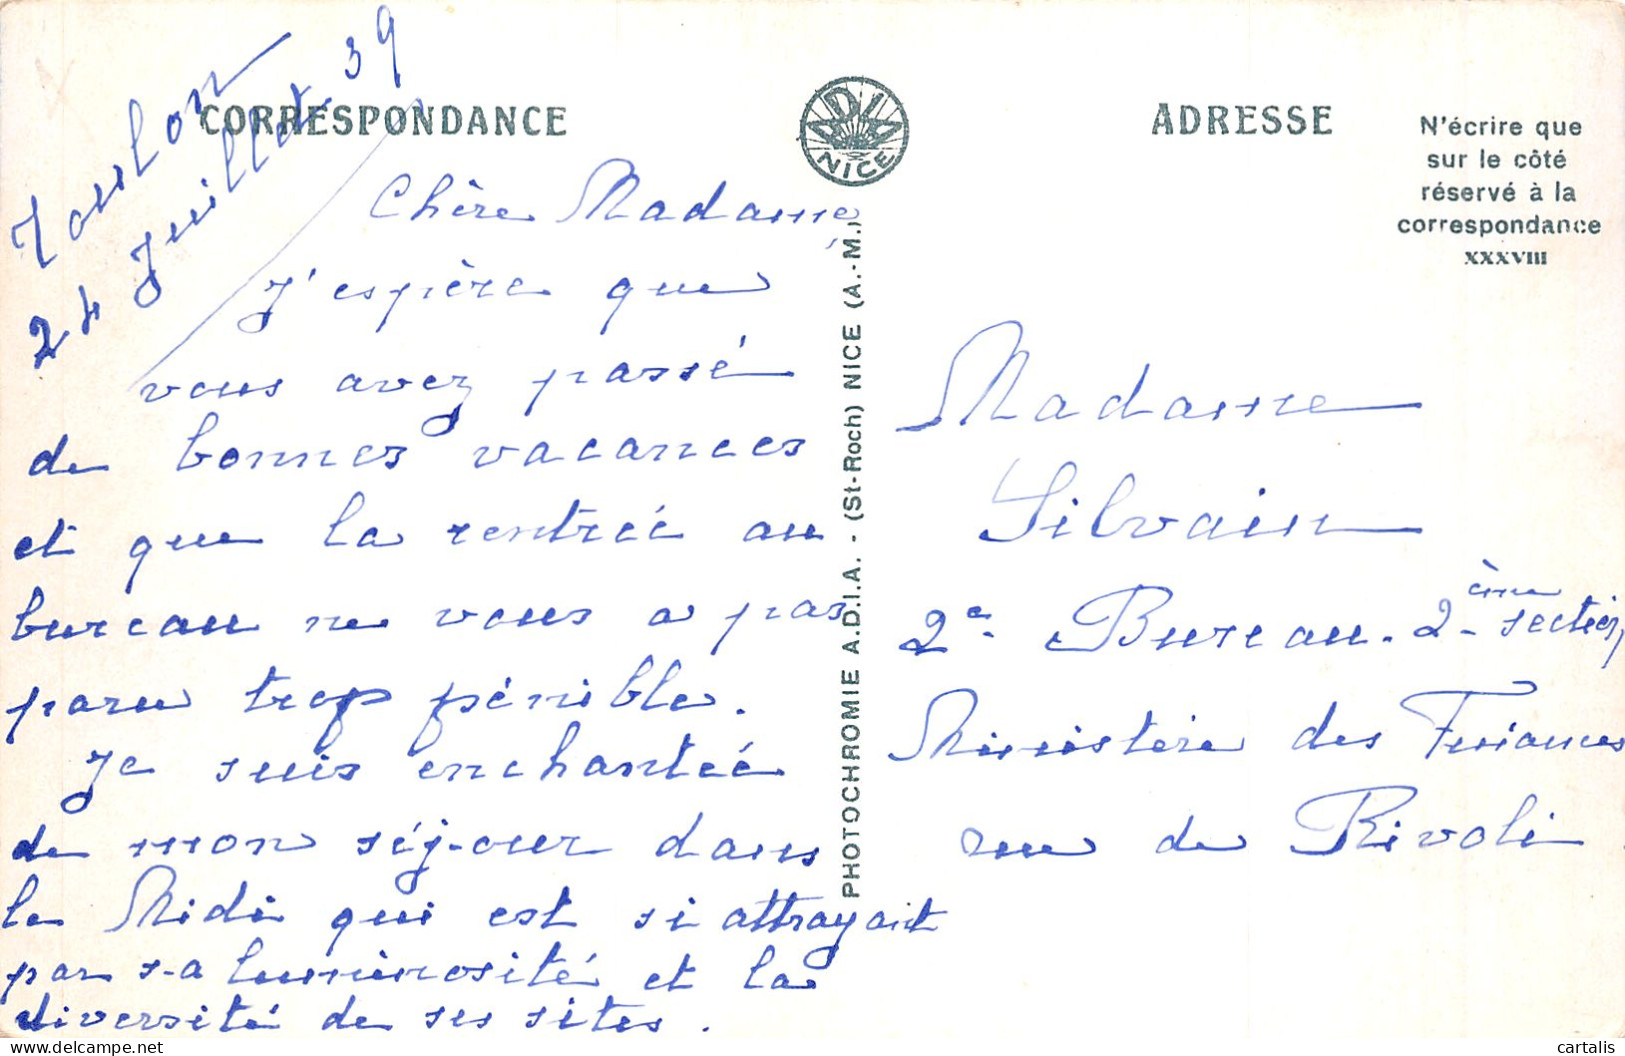 Toulon
24 Juillet 39
CORRESPONDANCE
Chère Madame
J'espère que
vous avez passé
de bonnes vacances
et que la rentrée au
bureau ne vous a pas
paru trop pénible.
Je suis enchantée
de mon séjour dans
le Midi qui est si attrayant
par sa luminosité et la
diversité de ses sites.
ADIA
NICE
PHOTOCHROMIE A.D.I.A. - (St-Roch) NICE (A.-M.)
ADRESSE
N'écrire que
sur le côté
réservé à la
correspondance
XXXVIII
Madame
Silvain
2e Bureau - 2ème section
Ministère des Finances
rue de Rivoli
cartalis